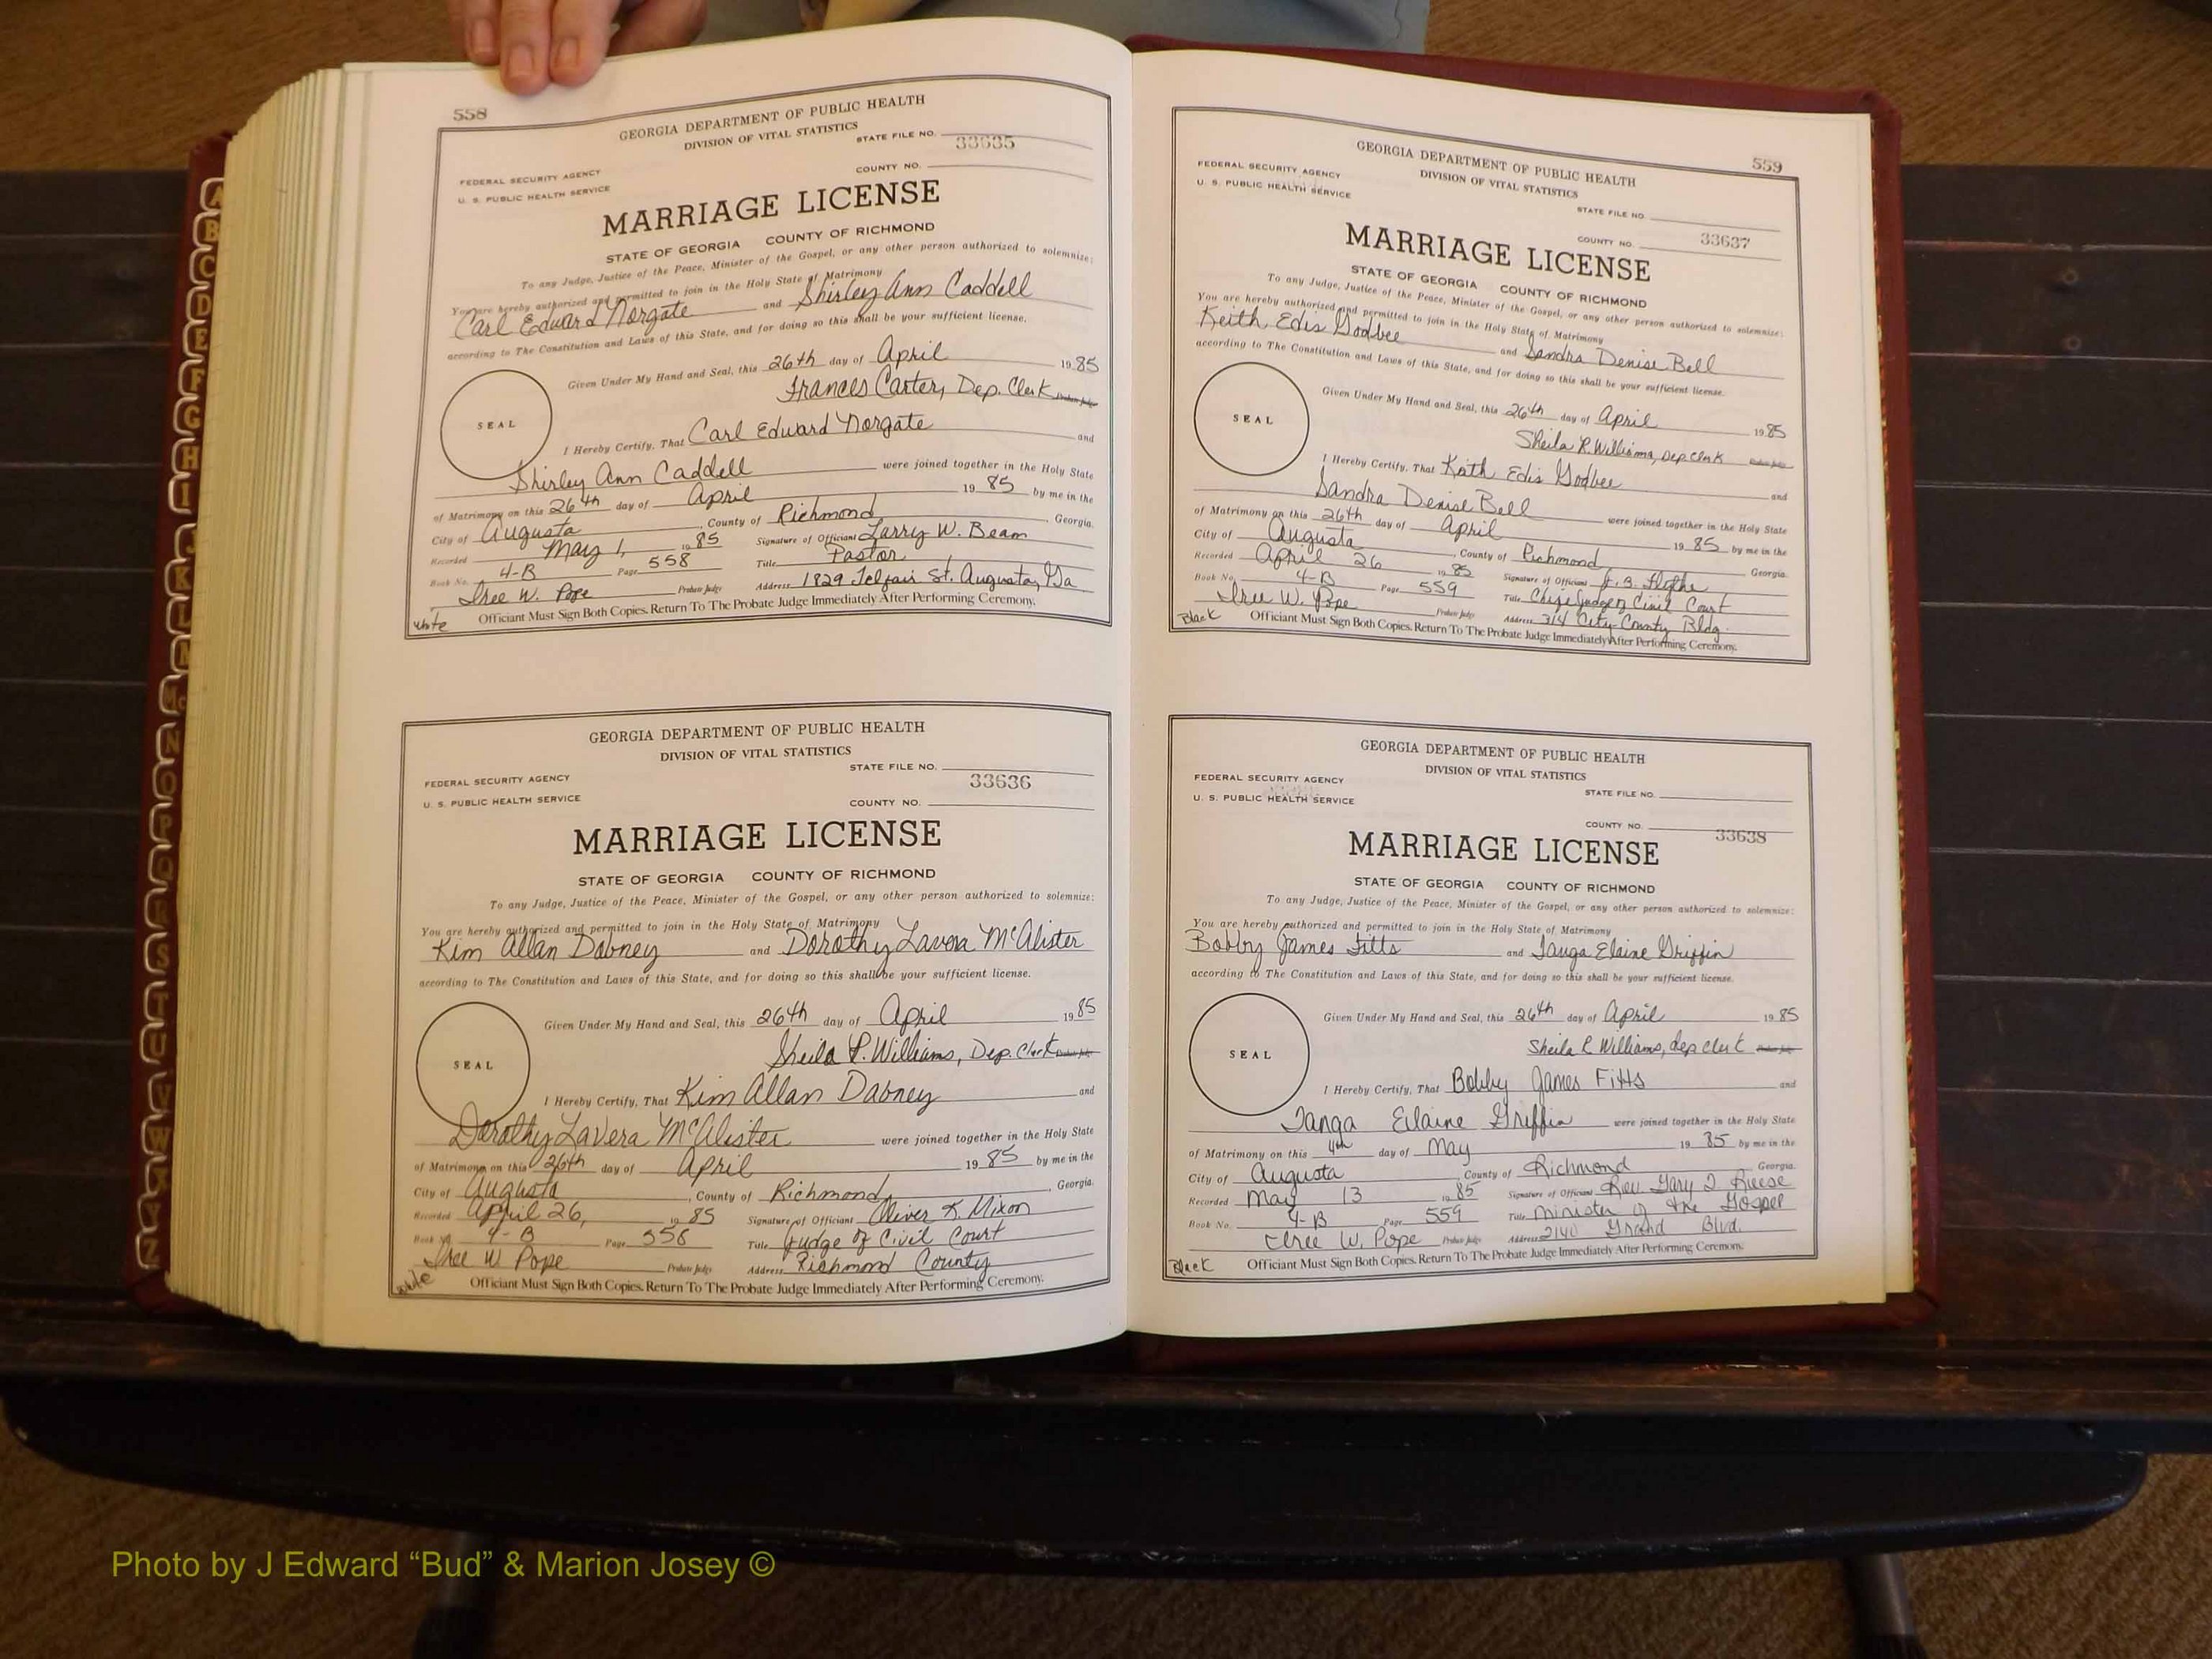 558
GEORGIA DEPARTMENT OF PUBLIC HEALTH
DIVISION OF VITAL STATISTICS
STATE FILE NO. 33635
FEDERAL SECURITY AGENCY
COUNTY NO.
U. S. PUBLIC HEALTH SERVICE
MARRIAGE LICENSE
STATE OF GEORGIA COUNTY OF RICHMOND
To any Judge, Justice of the Peace, Minister of the Gospel, or any other person authorized to solemnize:
You are hereby authorized and permitted to join in the Holy State of Matrimony
Carl Edward Norgate and Shirley Ann Caddell
according to The Constitution and Laws of this State, and for doing so this shall be your sufficient license.
Given Under My Hand and Seal, this 26th day of April 1985
Frances Carter, Dep. Clerk Probate Judge
SEAL
I Hereby Certify, That Carl Edward Norgate and
Shirley Ann Caddell were joined together in the Holy State
of Matrimony on this 26th day of April 1985 by me in the
City of Augusta, County of Richmond, Georgia.
Recorded May 1, 1985 Signature of Officiant Larry W. Beam
Book No. 4-B Page 558 Title Pastor
W. Pope Probate Judge Address 1829 Telfair St. Augusta, Ga
White Officiant Must Sign Both Copies. Return To The Probate Judge Immediately After Performing Ceremony.
GEORGIA DEPARTMENT OF PUBLIC HEALTH
DIVISION OF VITAL STATISTICS
STATE FILE NO.
33636
FEDERAL SECURITY AGENCY
U. S. PUBLIC HEALTH SERVICE COUNTY NO.
MARRIAGE LICENSE
STATE OF GEORGIA COUNTY OF RICHMOND
To any Judge, Justice of the Peace, Minister of the Gospel, or any other person authorized to solemnize:
You are hereby authorized and permitted to join in the Holy State of Matrimony
Kim Allan Dabney and Dorothy Lavera McAlister
according to The Constitution and Laws of this State, and for doing so this shall be your sufficient license.
Given Under My Hand and Seal, this 26th day of April 1985
Sheila R. Williams, Dep. Clerk Probate Judge
SEAL
I Hereby Certify, That Kim Allan Dabney and
Dorothy LaVera McAlister were joined together in the Holy State
of Matrimony on this 26th day of April 1985 by me in the
City of Augusta, County of Richmond, Georgia.
Recorded April 26, 1985 Signature of Officiant Oliver K. Mixon
Book No. 4-B Page 558 Title Judge of Civil Court
W. Pope Probate Judge Address Richmond County
White Officiant Must Sign Both Copies. Return To The Probate Judge Immediately After Performing Ceremony.
559
GEORGIA DEPARTMENT OF PUBLIC HEALTH
DIVISION OF VITAL STATISTICS
FEDERAL SECURITY AGENCY
U. S. PUBLIC HEALTH SERVICE
STATE FILE NO.
COUNTY NO. 33637
MARRIAGE LICENSE
STATE OF GEORGIA COUNTY OF RICHMOND
To any Judge, Justice of the Peace, Minister of the Gospel, or any other person authorized to solemnize:
You are hereby authorized and permitted to join in the Holy State of Matrimony
Keith Edis Godbee and Sandra Denise Bell
according to The Constitution and Laws of this State, and for doing so this shall be your sufficient license.
Given Under My Hand and Seal, this 26th day of April 1985
Sheila R. Williams, Dep Clerk Probate Judge
SEAL
I Hereby Certify, That Keith Edis Godbee and
Sandra Denise Bell were joined together in the Holy State
of Matrimony on this 26th day of April 1985 by me in the
City of Augusta, County of Richmond, Georgia.
Recorded April 26 1985 Signature of Officiant
Book No. 4-B Page 559 Title Chief Judge of Civil Court
W. Pope Probate Judge Address 314 City-County Bldg.
Black Officiant Must Sign Both Copies. Return To The Probate Judge Immediately After Performing Ceremony.
GEORGIA DEPARTMENT OF PUBLIC HEALTH
DIVISION OF VITAL STATISTICS
FEDERAL SECURITY AGENCY
STATE FILE NO.
U. S. PUBLIC HEALTH SERVICE
COUNTY NO. 33638
MARRIAGE LICENSE
STATE OF GEORGIA COUNTY OF RICHMOND
To any Judge, Justice of the Peace, Minister of the Gospel, or any other person authorized to solemnize:
You are hereby authorized and permitted to join in the Holy State of Matrimony
Bobby James Fitts and Tanga Elaine Griffin
according to The Constitution and Laws of this State, and for doing so this shall be your sufficient license.
Given Under My Hand and Seal, this 26th day of April 1985
Sheila R Williams, dep clerk Probate Judge
SEAL
I Hereby Certify, That Bobby James Fitts and
Tanga Elaine Griffin were joined together in the Holy State
of Matrimony on this 4th day of May 1985 by me in the
City of Augusta, County of Richmond Georgia.
Recorded May 13 1985 Signature of Officiant Rev. Gary D Reese
Book No. 4-B Page 559 Title minister of the Gospel
W. Pope Probate Judge Address 2140 Grand Blvd.
Black Officiant Must Sign Both Copies. Return To The Probate Judge Immediately After Performing Ceremony.
A
B
C
D
E
F
G
H
I
J
K
L
M
Mc
N
O
P
Q
R
S
T
U
V
W
X
Y
Z
Photo by J Edward “Bud” & Marion Josey ©